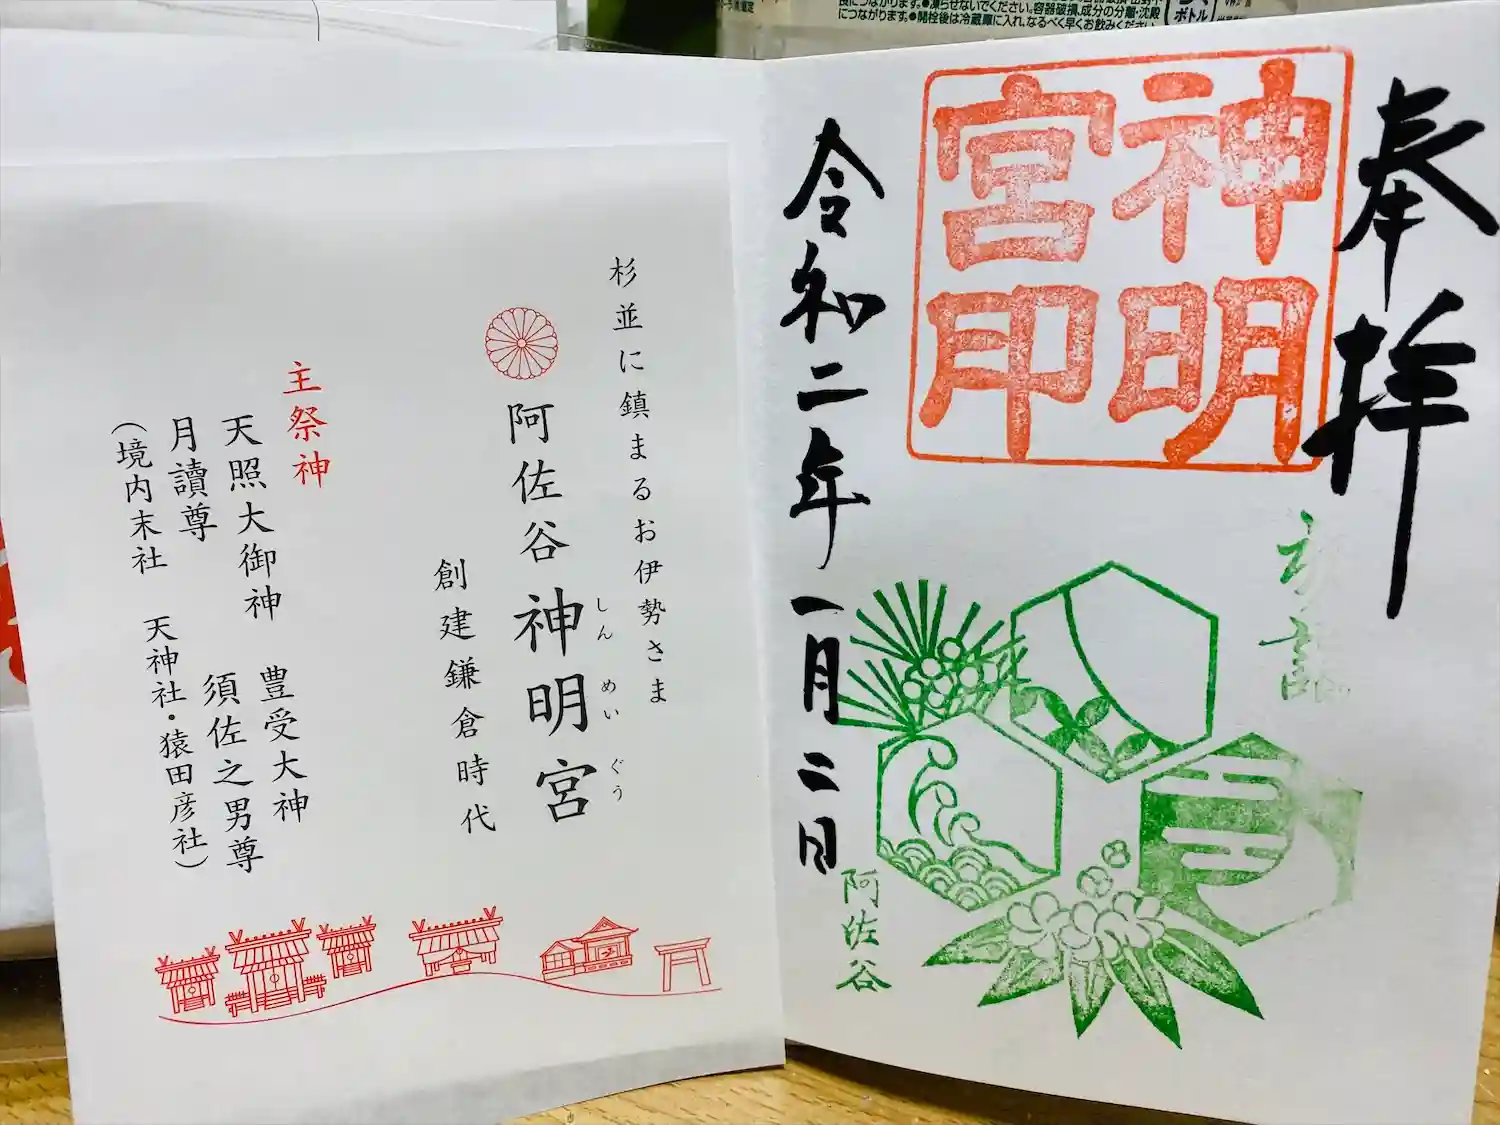 奉拝
神明宮印
初詣
令和二年一月二日
阿佐谷
杉並に鎮まるお伊勢さま
阿佐谷神明宮
しんめいぐう
創建鎌倉時代
主祭神
天照大御神 豊受大神
月讀尊 須佐之男尊
（境内末社 天神社・猿田彦社）
につながります。●開栓後は冷蔵庫に入れ、なるべく早くお飲みください。
ボトル